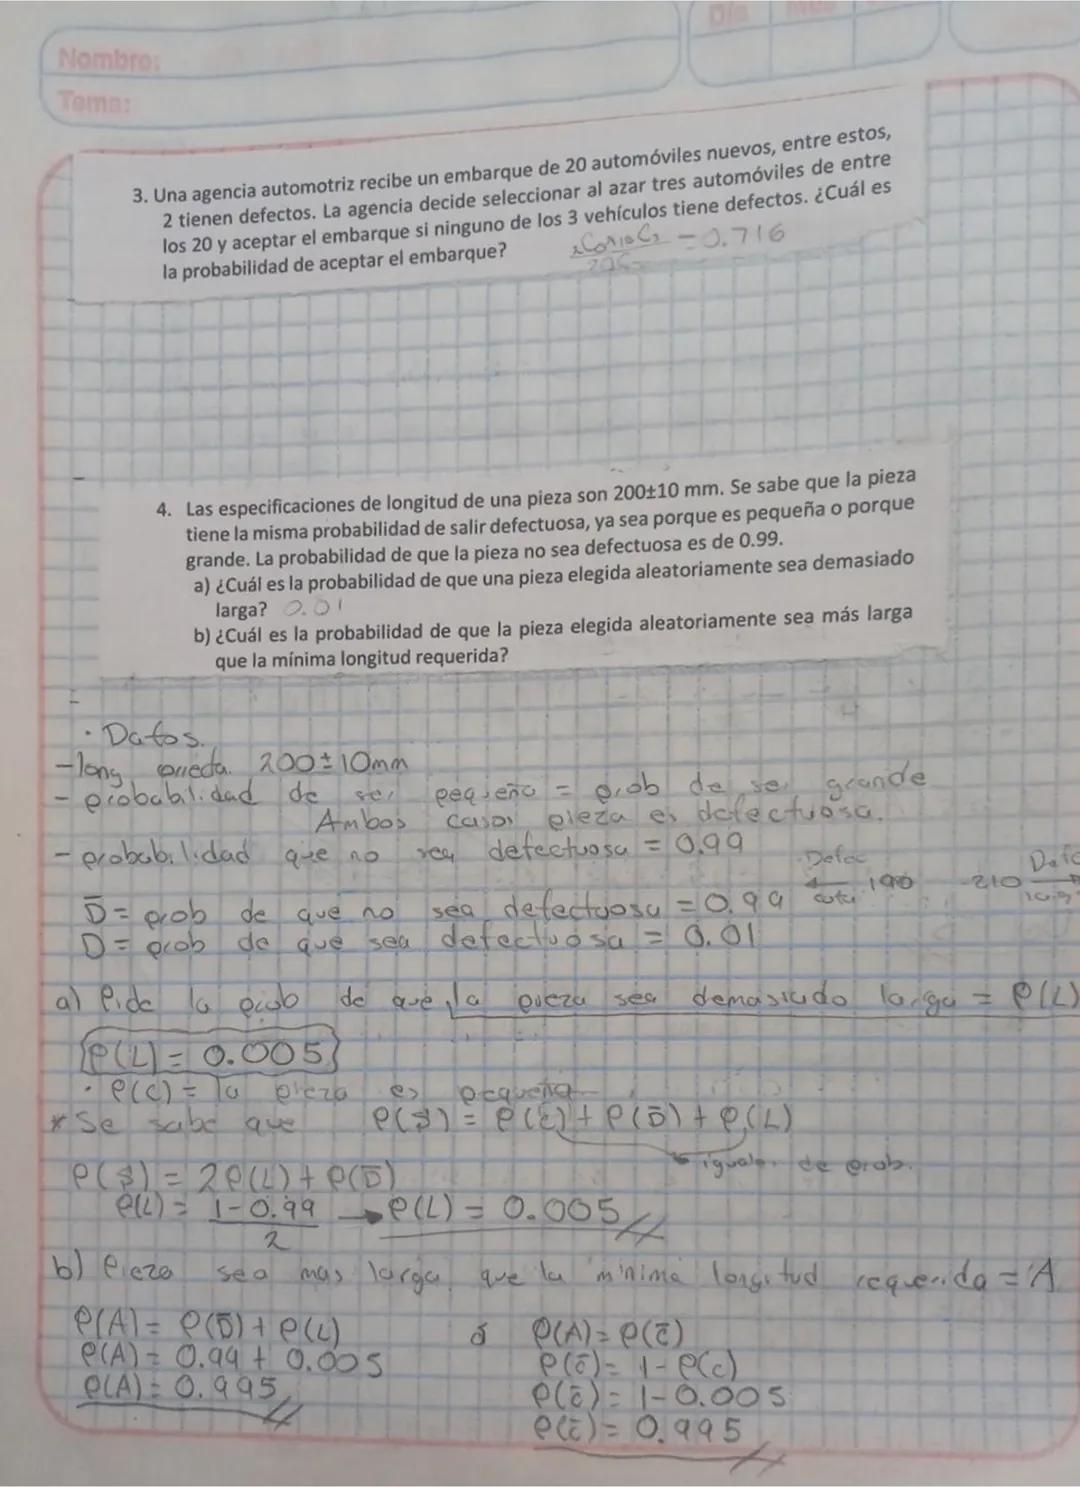 Día
Nombre:
Tema:
3. Una agencia automotriz recibe un embarque de 20 automóviles nuevos, entre estos,
2 tienen defectos. La agencia decide seleccionar al azar tres automóviles de entre
los 20 y aceptar el embarque si ninguno de los 3 vehículos tiene defectos. ¿Cuál es
la probabilidad de aceptar el embarque?
= 0.716
4. Las especificaciones de longitud de una pieza son 200±10 mm. Se sabe que la pieza
tiene la misma probabilidad de salir defectuosa, ya sea porque es pequeña o porque
grande. La probabilidad de que la pieza no sea defectuosa es de 0.99.
a) ¿Cuál es la probabilidad de que una pieza elegida aleatoriamente sea demasiado
larga? 0.01
b) ¿Cuál es la probabilidad de que la pieza elegida aleatoriamente sea más larga
que la mínima longitud requerida?
· Datos.
- long 200±10mm
- probabilidad de ser pequeña = prob de ser grande
Ambos casos pieza es defectuosa.
- probabilidad que no sea defectuosa = 0.99
Defec
190 210
D̅ = prob de que no sea defectuosa = 0.99
D = prob de que sea defectuosa = 0.01
a) Pide la prob de que la pieza sea demasiado larga = P(L)
P(L) = 0.005
· P(C) = la pieza es pequeña
* Se sabe que P(S) = P(C) + P(D̅) + P(L)
iguales de prob.
P(S) = 2P(L) + P(D̅)
P(L) = 1-0.99 / 2 → P(L) = 0.005
b) Pieza sea mas larga que la minima longitud requerida = A
P(A) = P(D̅) + P(L) ó P(A) = P(c̅)
P(A) = 0.99 + 0.005 P(c̅) = 1 - P(c)
P(A) = 0.995 P(c̅) = 1 - 0.005
P(c̅) = 0.995